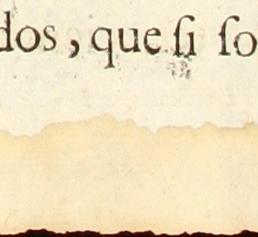 dos, que ſi ſo